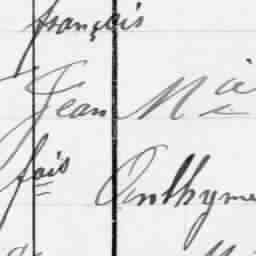 françois
Jean Mie
fois Onthyme